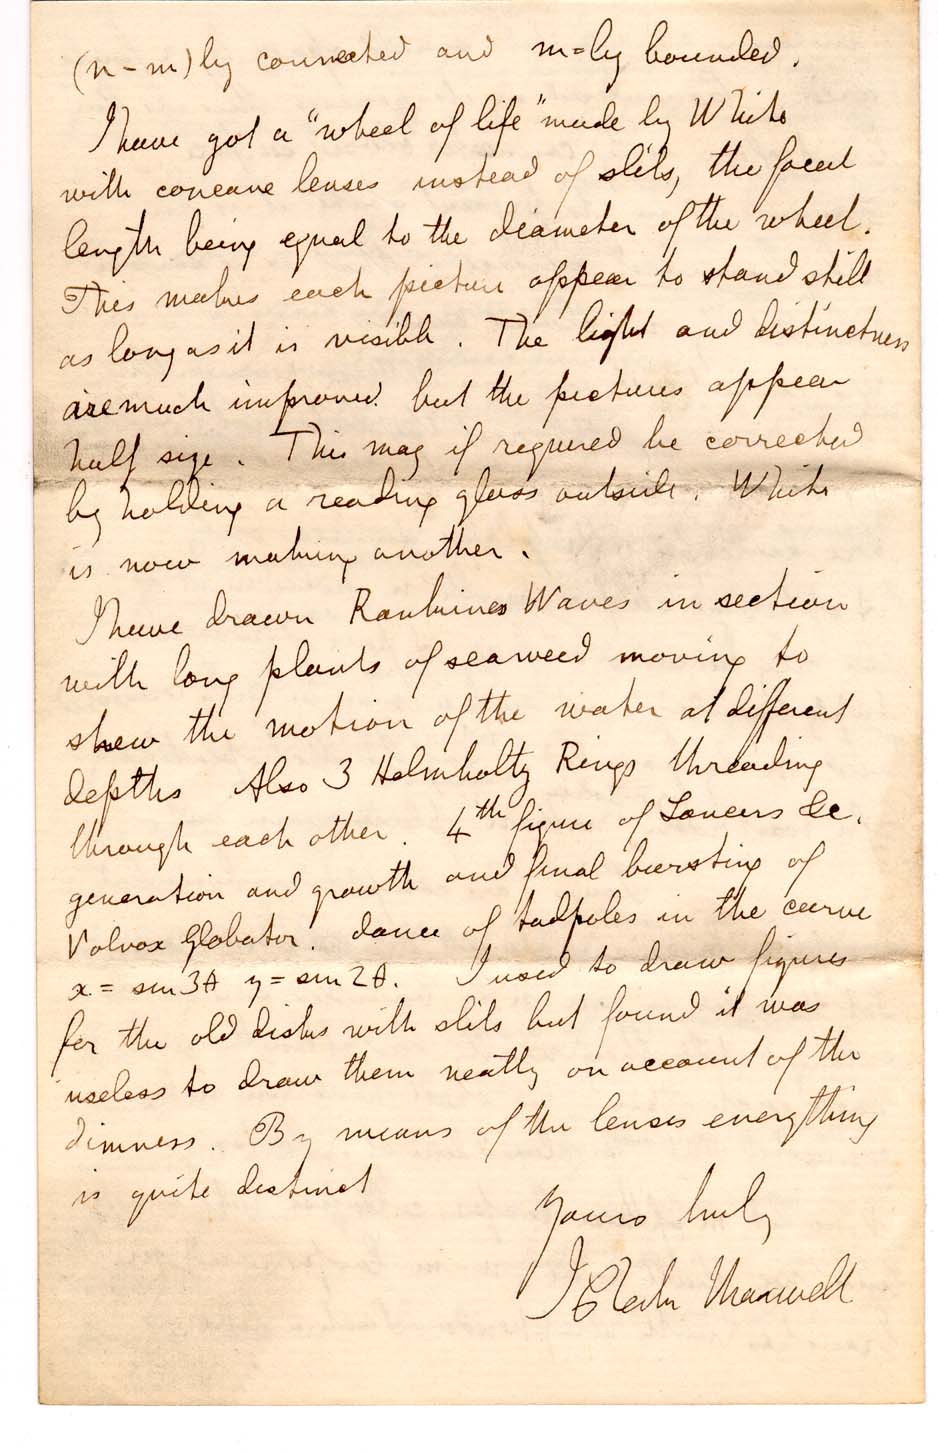 (n-m)ly connected and m=ly bounded.
I have got a "wheel of life" made by White
with concave lenses instead of slits, the focal
length being equal to the diameter of the wheel.
This makes each picture appear to stand still
as long as it is visible. The light and distinctness
are much improved but the pictures appear
half size. This may if required be corrected
by holding a reading glass outside. White
is now making another.
I have drawn Rankines Waves in section
with long plants of seaweed moving to
shew the motion of the water at different
depths Also 3 Helmholtz Rings threading
through each other. 4th figure of Lancers &c.
generation and growth and final bursting of
Volvox Globator. dance of tadpoles in the curve
x = sin 3θ y = sin 2θ. I used to draw figures
for the old disks with slits but found it was
useless to draw them neatly on account of the
dimness. By means of the lenses everything
is quite distinct
Yours truly
J Clerk Maxwell